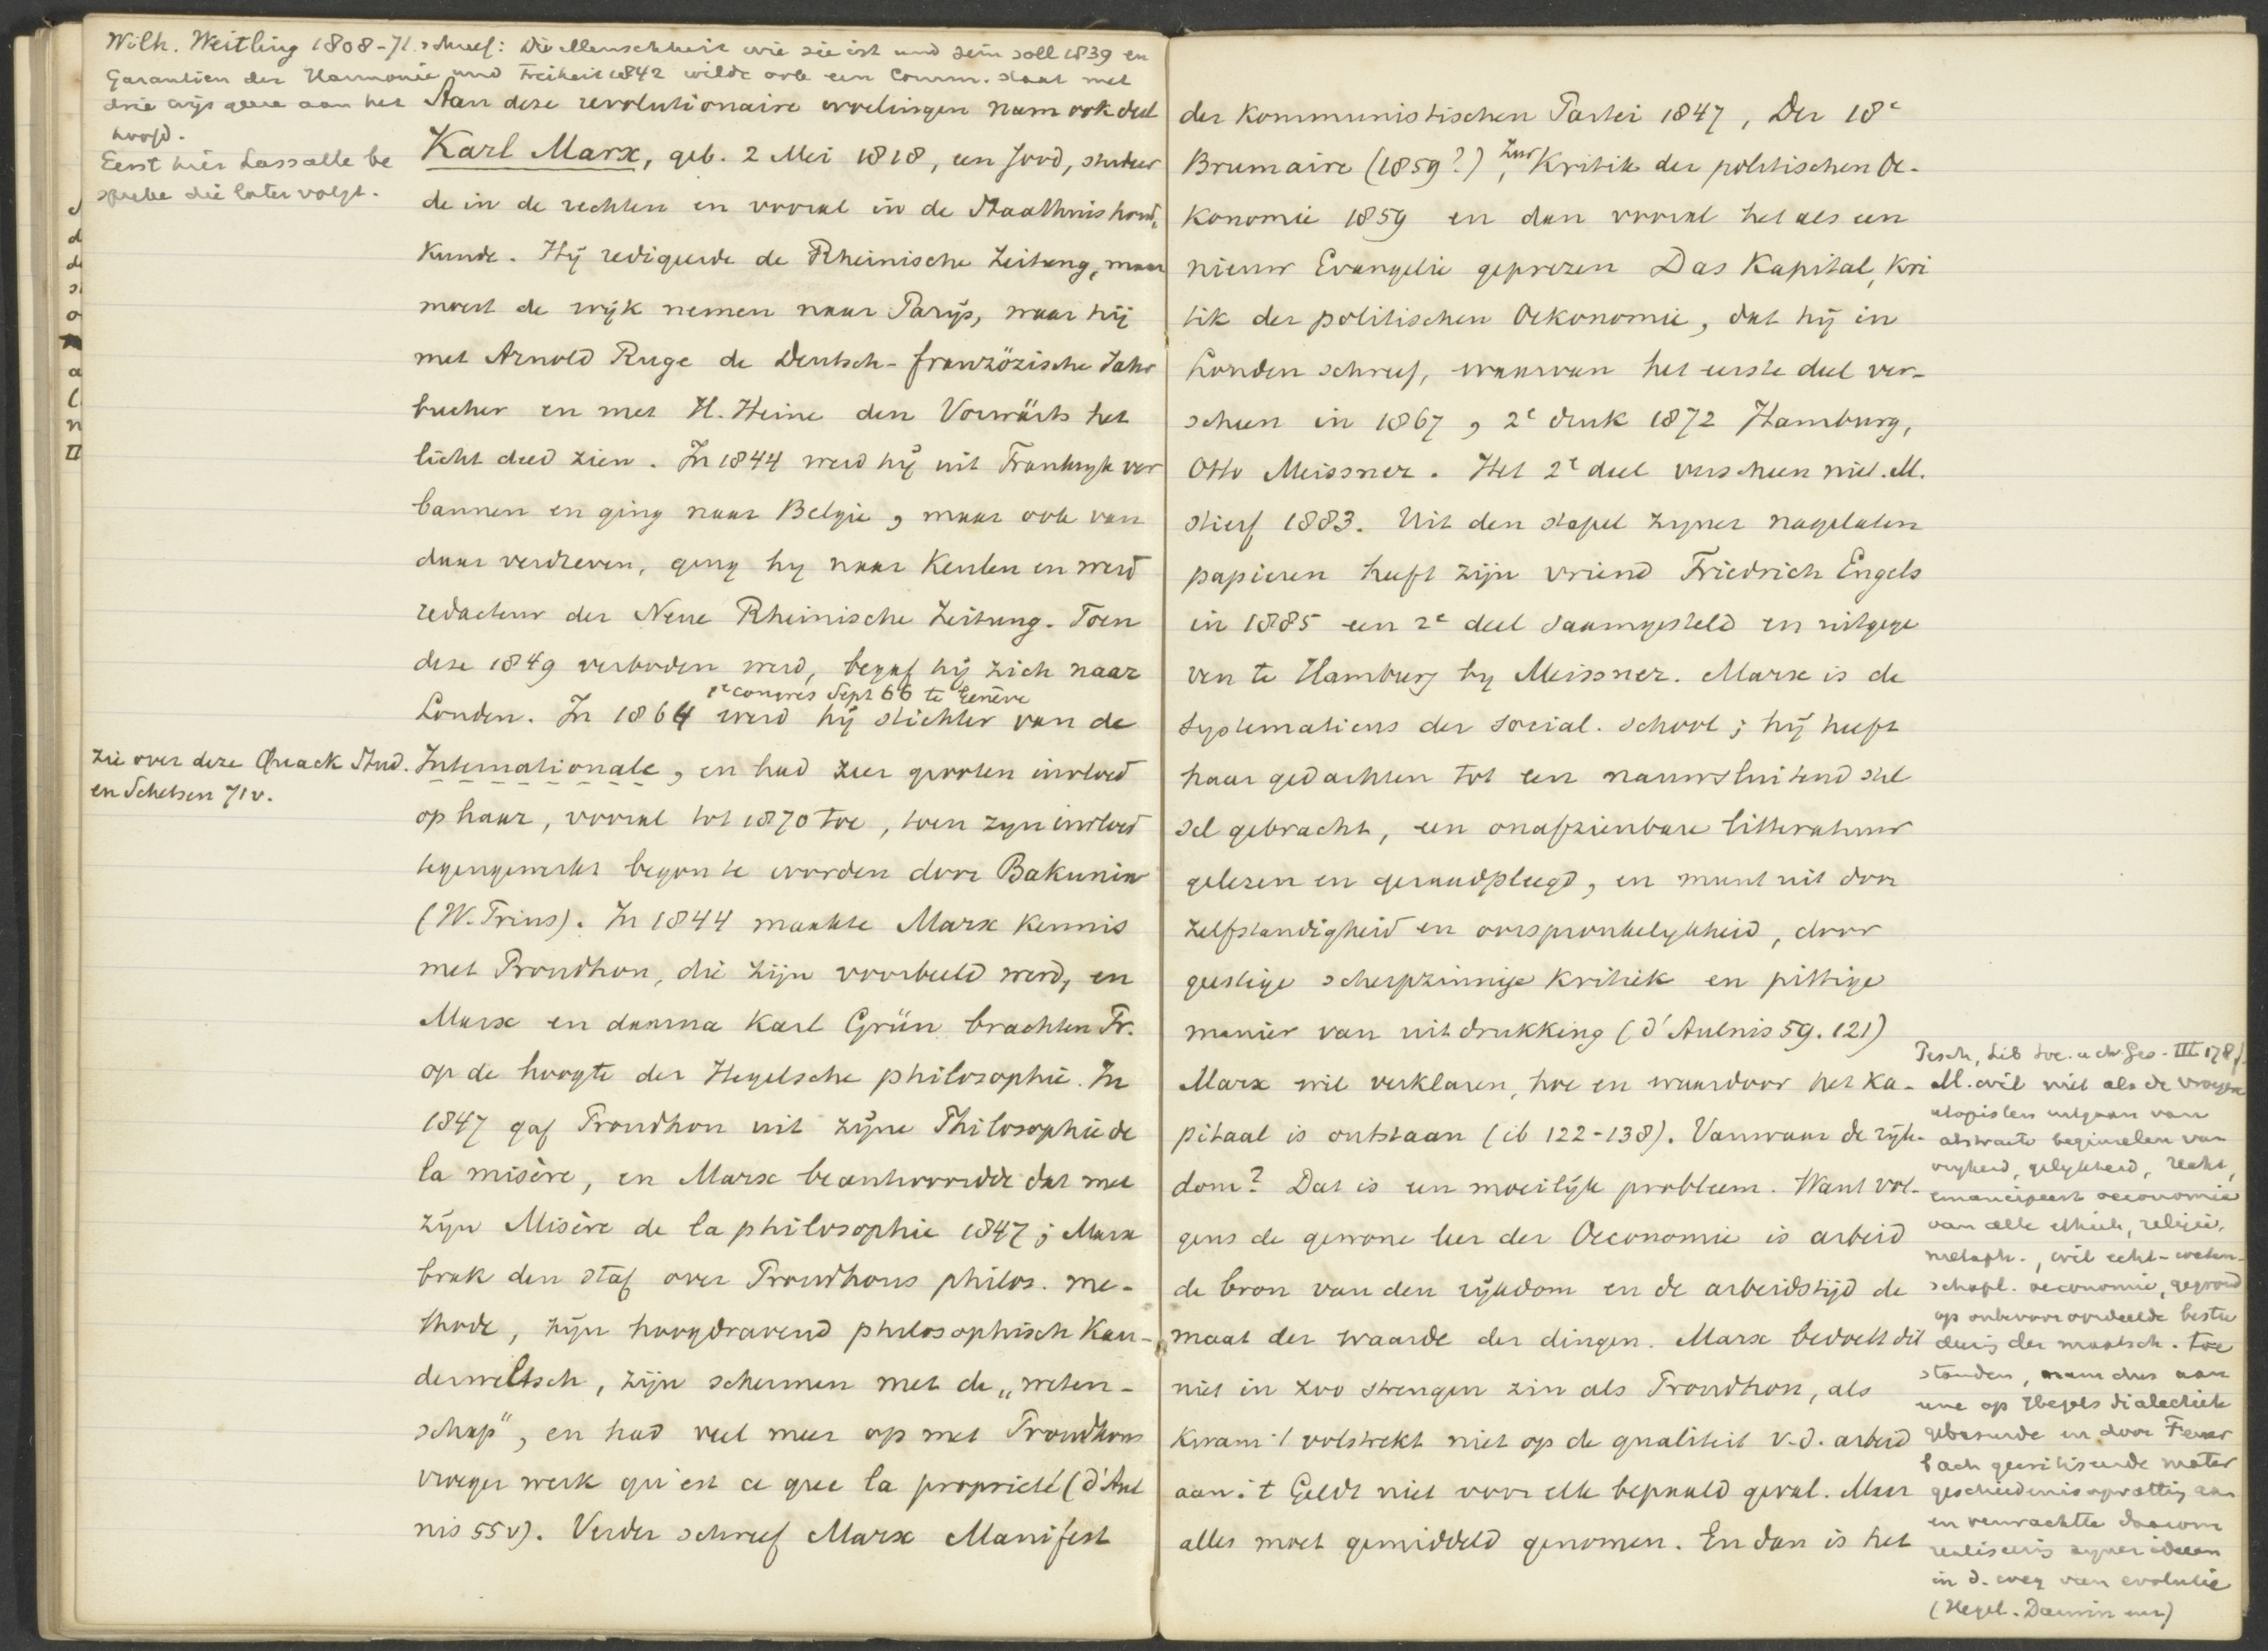 Wilh. Weitling 1808-71. schreef: Die Menschheit wie sie ist und sein soll 1839 en
Garantien der Harmonie und Freiheit 1842 wilde ook een Comm. staat met
drie wijsgeere aan het
hoofd.
Eerst hier Lassalle be
spreke die later volgt.
Aan deze revolutionaire woelingen nam ook deel
Karl Marx, geb. 2 Mei 1818, een Jood, studeer
de in de rechten en vooral in de Staathuishoud,
kunde. Hij redigeerde de Rheinische Zeitung, maar
moest de wijk nemen naar Parijs, waar hij
met Arnold Ruge de Deutsch-französische Jahr
bucher en met H. Heine den Vorwärts het
licht deed zien. In 1844 werd hij uit Frankryk ver
bannen en ging naar Belgie, maar ook van
daar verdreven, ging hy naar Keulen en werd
redacteur der Neue Rheinische Zeitung. Toen
deze 1849 verboden werd, begaf hij zich naar
1e congres Sept 66 te Genève
Londen. In 1864 werd hij stichter van de
Zie over deze Quack Stud.
en Schetsen 71v.
Internationale, en had zeer grooten invloed
op haar, vooral tot 1870 toe, toen zyn invloed
tegengewerkt begon te worden door Bakunin
(W. Frins). In 1844 maakte Marx kennis
met Proudhon, die zijn voorbeeld werd, en
Marx en daarna Karl Grün brachten Pr.
op de hoogte der Hegelsche philosophie. In
1847 gaf Proudhon uit zijne Philosophie de
la misère, en Marx beantwoordde dat met
zijn Misère de la philosophie 1847; Marx
brak den staf over Proudhons philos. me-
thode, zijn hoogdravend philosophisch Kau-
derweltsch, zijn schermen met de „weten-
schap", en had veel meer op met Proudhons
vroeger werk qu'est ce que la propriété (d'Aul
nis 55v). Verder schreef Marx Manifest
der Kommunistischen Partei 1847, Der 18e
Brumaire (1859?), Zur Kritik der politischen Oe-
konomie 1859 en dan vooral het als een
nieuw Evangelie geprezen Das Kapital, Kri
tik der politischen Oekonomie, dat hij in
Londen schreef, waarvan het eerste deel ver-
scheen in 1867, 2e druk 1872 Hamburg,
Otto Meissner. Het 2e deel verscheen niet. M.
stierf 1883. Uit den stapel zyner nagelaten
papieren heeft zijn vriend Friedrich Engels
in 1885 een 2e deel saamgesteld en uitgege
ven te Hamburg by Meissner. Marx is de
systematicus der social. school; hij heeft
haar gedachten tot een nauwsluitend stel
sel gebracht, een onafzienbare litteratuur
gelezen en geraadpleegd, en munt uit door
zelfstandigheid en oorspronkelykheid, door
geestige scherpzinnige kritiek en pittige
manier van uitdrukking (d'Aulnis 59. 121)
Marx wil verklaren, hoe en waardoor het Ka-
pitaal is ontstaan (ib 122-138). Vanwaar de rijk-
dom? Dat is een moeilijk probleem. Want vol-
gens de gewone leer der Oeconomie is arbeid
de bron van den rijkdom en de arbeidstijd de
maat der waarde der dingen. Marx bedoelt dit
niet in zoo strengen zin als Proudhon, als
kwam 't volstrekt niet op de qualiteit v.d. arbeid
aan. 't Geldt niet voor elk bepaald geval. Maar
alles moet gemiddeld genomen. En dan is het
Pesch, Lib. Soc. u. chr. Ges. III 178f.
M. wil niet als de vroegere
utopisten uitgaan van
abstracte beginselen van
vryheid, gelykheid, recht,
emancipeert oeconomie
van alle ethiek, religie,
metaph., wil echt-weten-
schapl. oeconomie, gegrond
op onbevooroordeelde bestu
deerig der maatsch. toe
standen, nam dus aan
eene op Hegels dialectiek
gebaseerde en door Feuer
bach gecritiseerde mater
geschiedenisopvattig aan
en verwachtte daarom
realiseerig zyner ideeen
in d. weg van evolutie
(Hegel. Darwin enz)